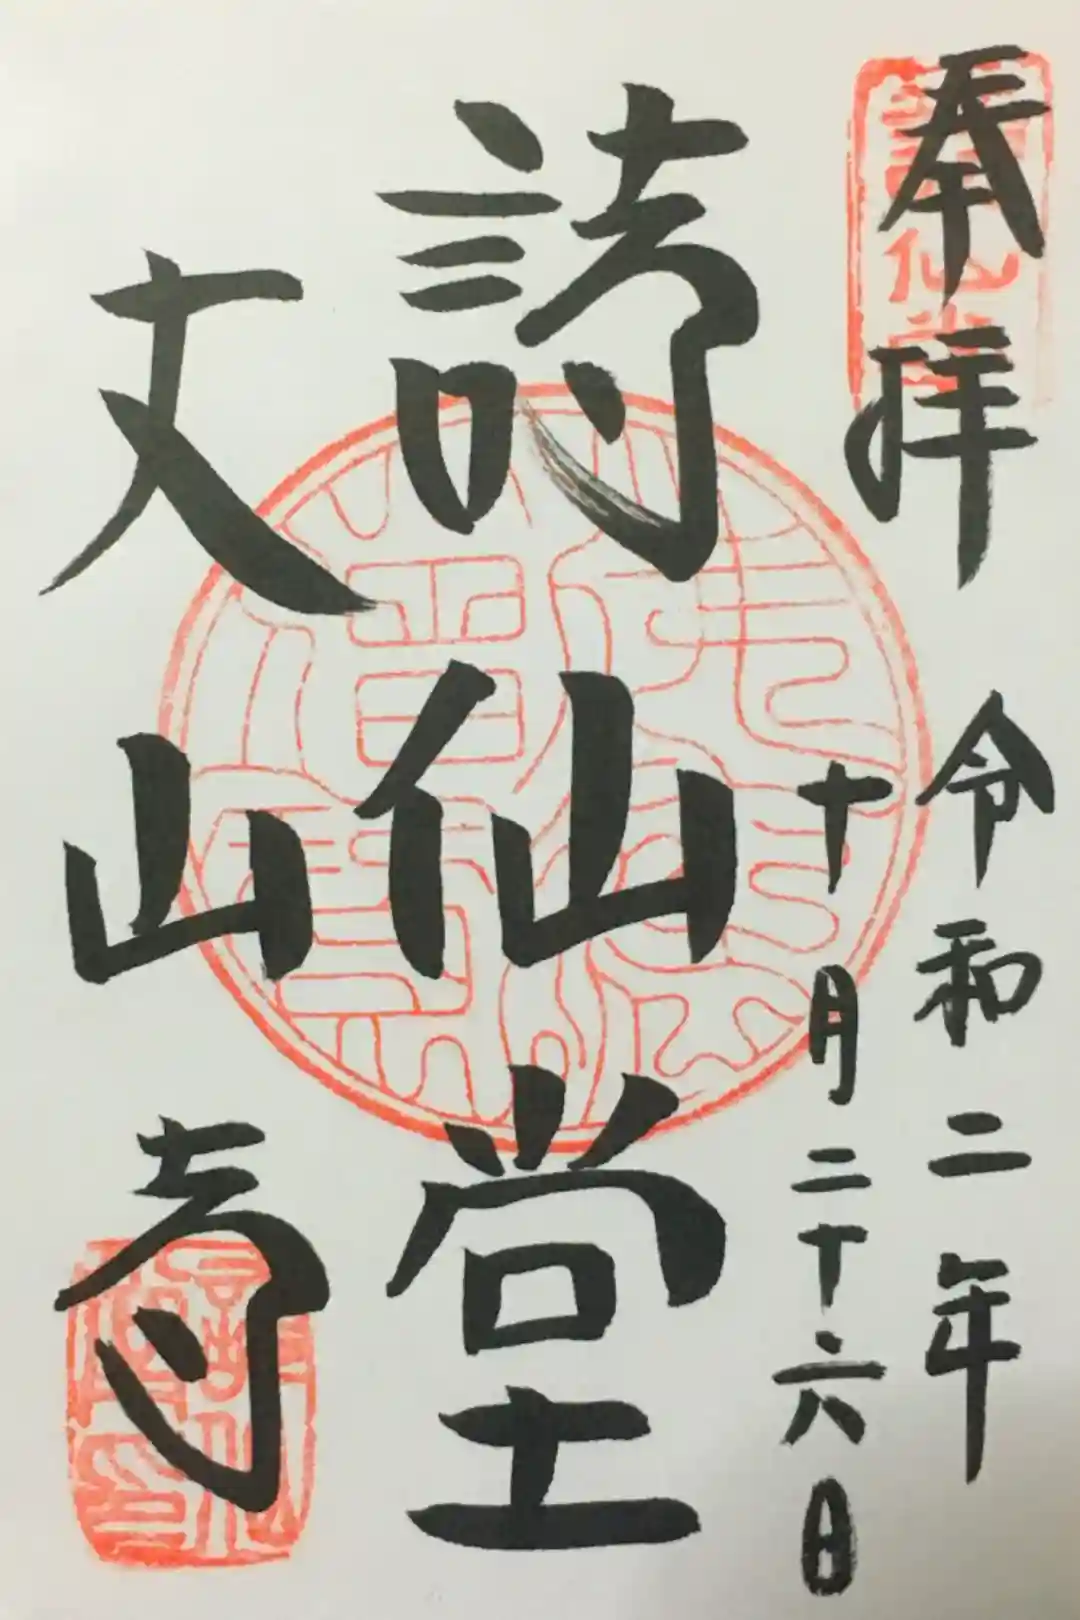 奉拝
令和二年
十月二十六日
詩仙堂
丈山寺